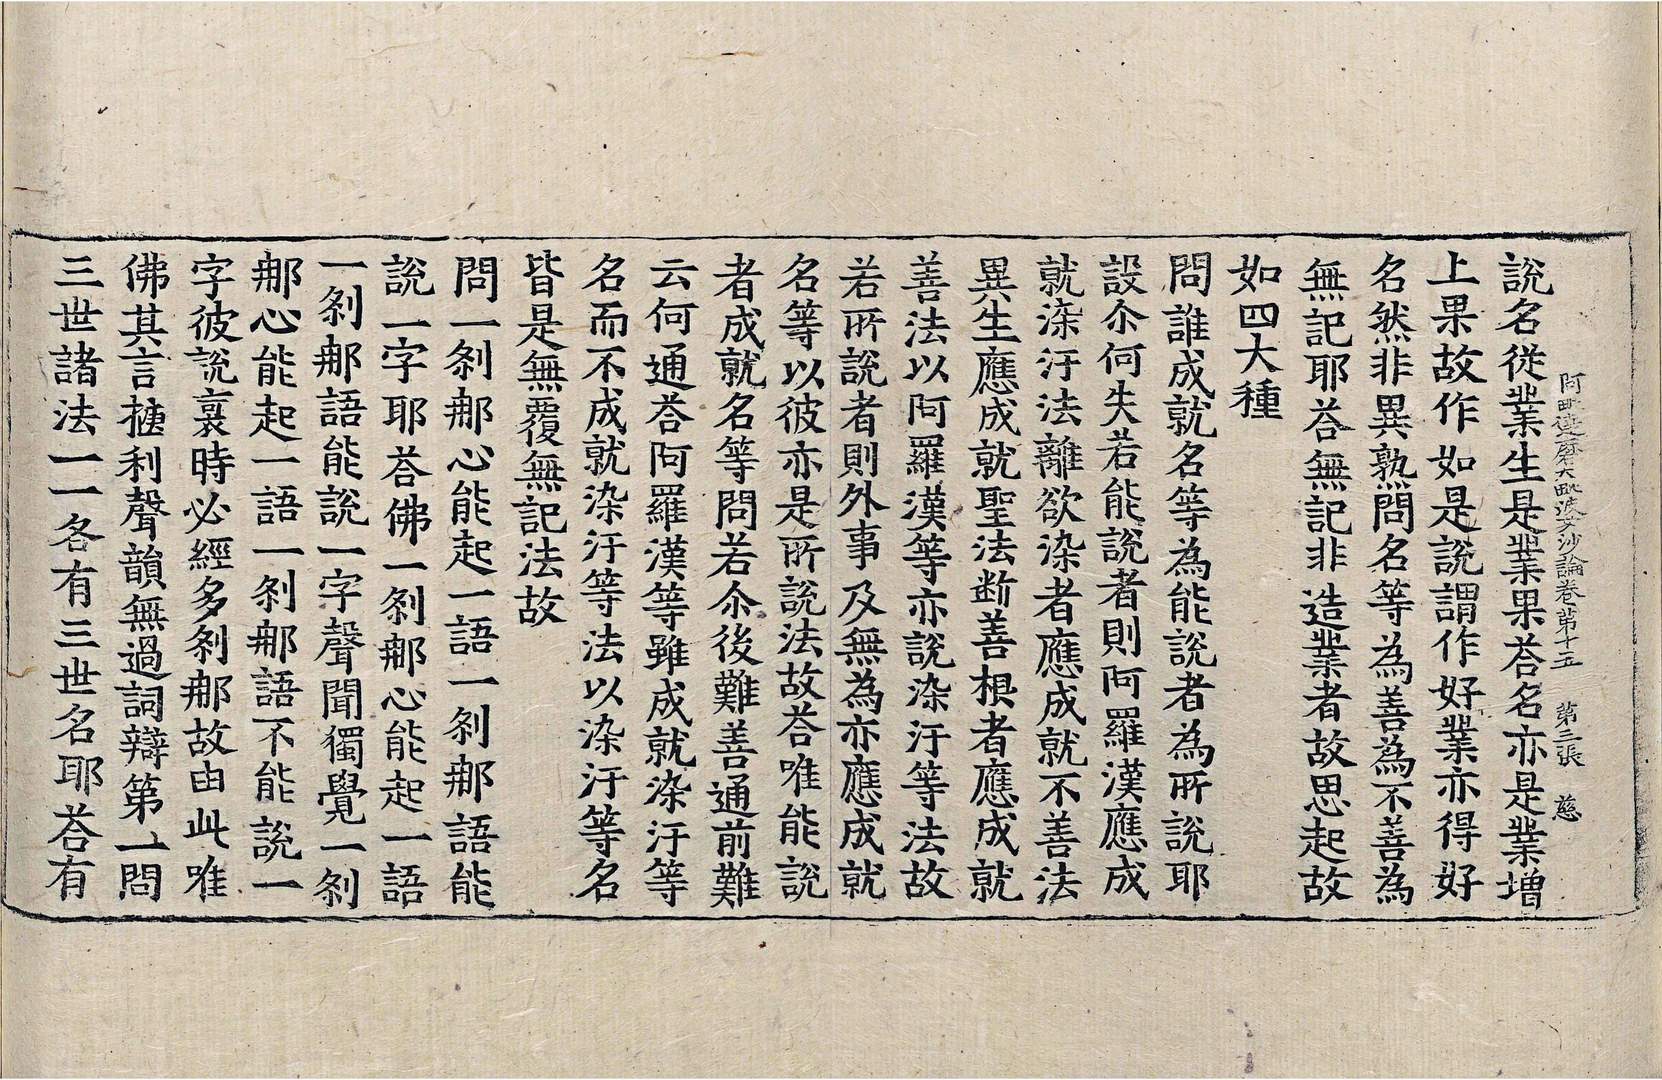 阿毗達磨大毗婆沙論卷第十五　第三張　慈
說名從業生是業果荅名亦是業增
上果故作如是說謂作好業亦得好
名然非異熟問名等為善為不善為
無記耶荅無記非造業者故思起故
如四大種
問誰成就名等為能說者為所說耶
設尒何失若能說者則阿羅漢應成
就染汙法離欲染者應成就不善法
異生應成就聖法斷善根者應成就
善法以阿羅漢等亦說染汙等法故
若所說者則外事及無為亦應成就
名等以彼亦是所說法故荅唯能說
者成就名等問若尒後難善通前難
云何通荅阿羅漢等雖成就染汙等
名而不成就染汙等法以染汙等名
皆是無覆無記法故
問一剎那心能起一語一剎那語能
說一字耶荅佛一剎那心能起一語
一剎那語能說一字聲聞獨覺一剎
那心能起一語一剎那語不能說一
字彼說裒時必經多剎那故由此唯
佛其言捷利聲韻無過詞辯第一問
三世諸法一一各有三世名耶荅有